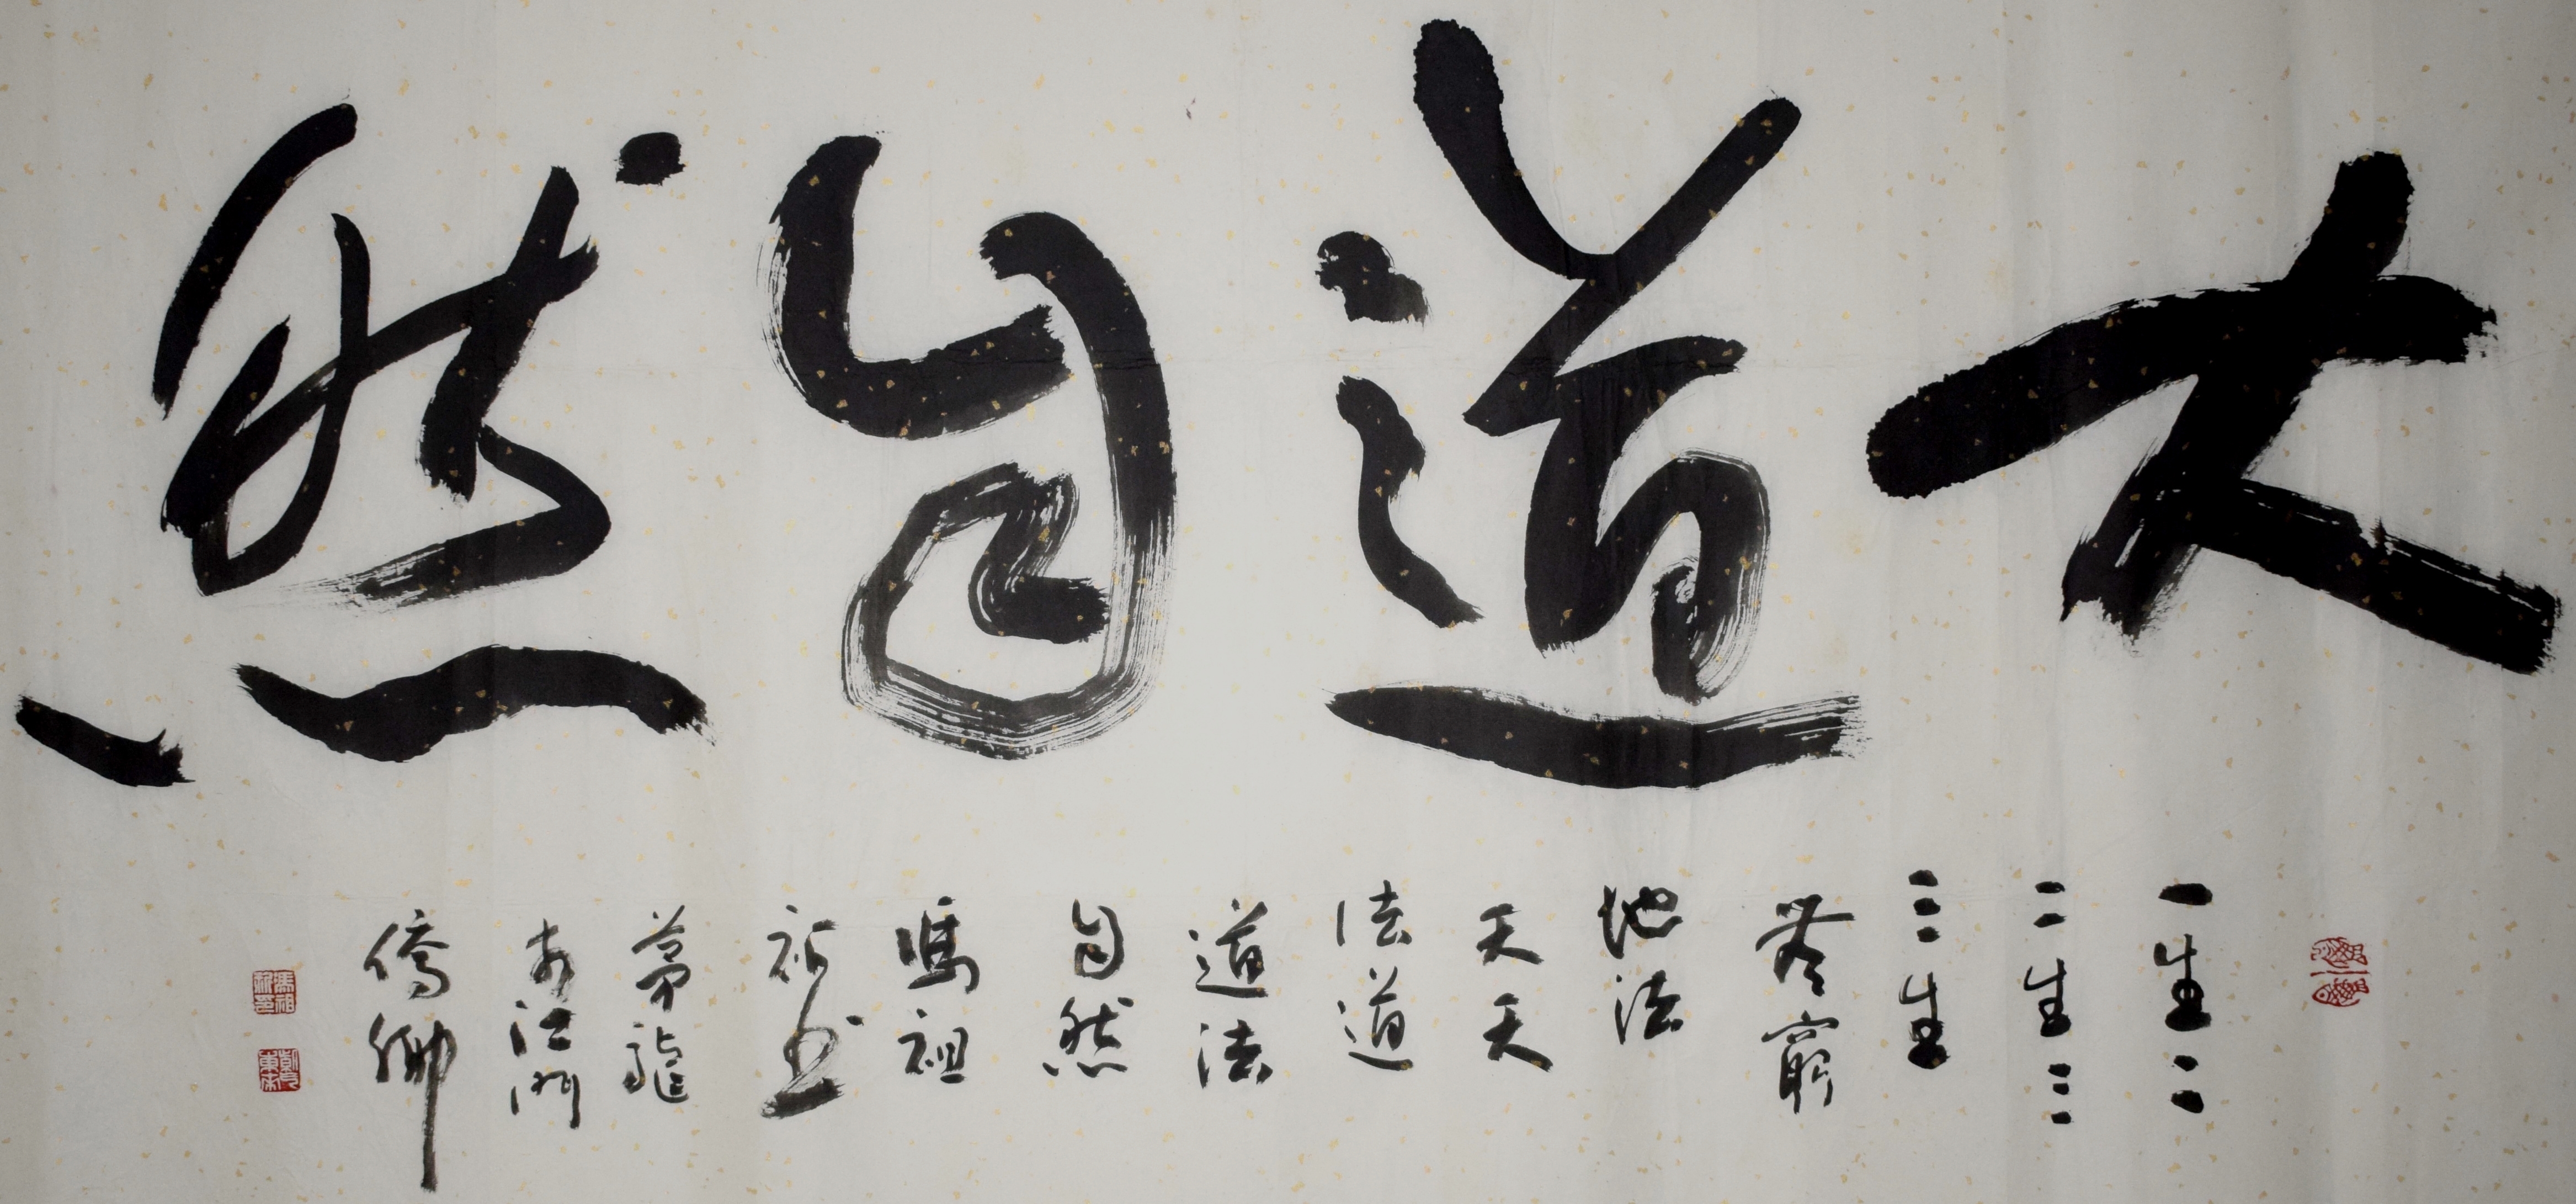 大道自然
一生二
二生三
三生
無窮
地法
天天
法道
道法
自然
馮祖
书
茅龍
於江門
僑鄉